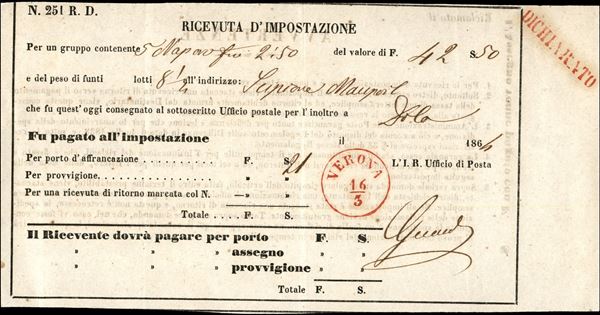 N. 251 R. D.
RICEVUTA D'IMPOSTAZIONE
DICHIARATO
Per un gruppo contenente 5 Napor fni 2:50 del valore di F. 42 S. 50
e del peso di funti lotti 8 1/4 all'indirizzo: Scipione
che fu quest' oggi consegnato al sottoscritto Ufficio postale per l'inoltro a
Fu pagato all'impostazione il 1864
Per porto d'affrancazione . . . . F. S. 21 L'I. R. Ufficio di Posta
Per provvigione. . . . . . . . . . " "
VERONA
16/3
Per una ricevuta di ritorno marcata col N. " "
Totale . . . F. S.
Il Ricevente dovrà pagare per porto F. S.
" " " assegno " "
" " " provvigione " "
Totale F. S.